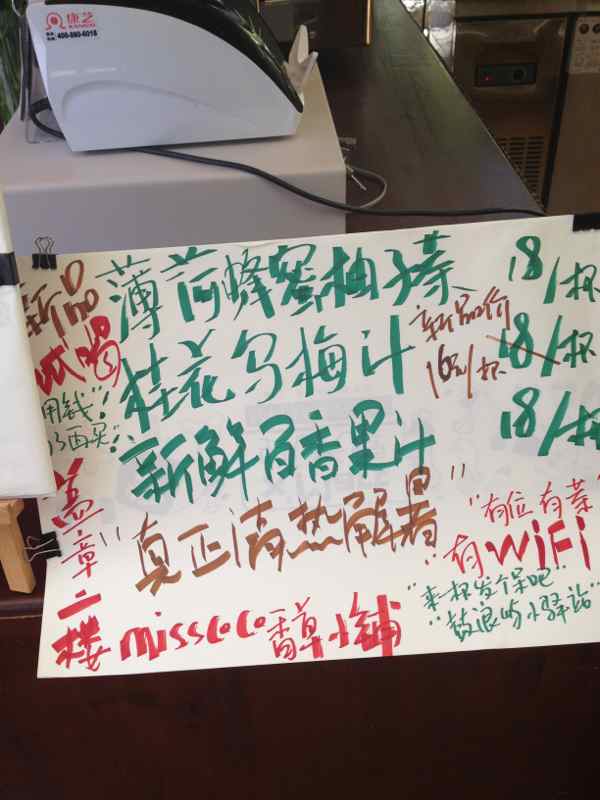 康艺
400-880-6018
新品
试喝
薄荷蜂蜜柚子茶 18/杯
桂花乌梅汁 18/杯
新品价
16元/杯
新鲜百香果汁 18/杯
"真正清热解暑"
盖章二楼
misscoco香草小铺
"有位有茶"
有WiFi
"来一杯发个呆吧"